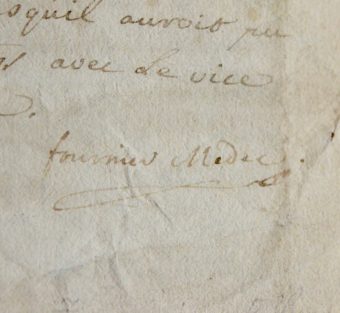 squil auroit pu
avec le vice
fournier Medec